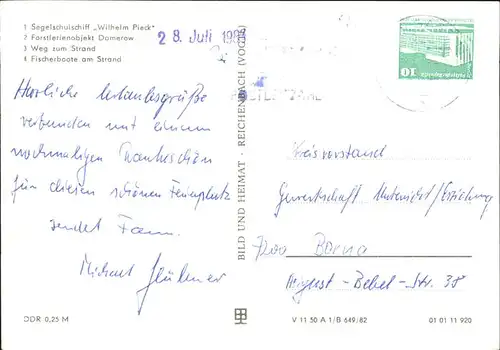 1 Segelschulschiff „Wilhelm Pieck"
2 Forstferienobjekt Damerow
3 Weg zum Strand
4 Fischerboote am Strand
28. Juli 198
10
Herzliche Urlaubsgrüße
verbunden mit einem
nochmaligen Dankeschön
für diesen schönen Ferienplatz
sendet Fam.
Michael
BILD UND HEIMAT · REICHENBACH (VOGTL)
Kreisvorstand
Gewerkschaft Unterricht/Erziehung
7200 Borna
August-Bebel-Str. 38
DDR 0,25 M
V 11 50 A 1/B 649/82
01 01 11 920